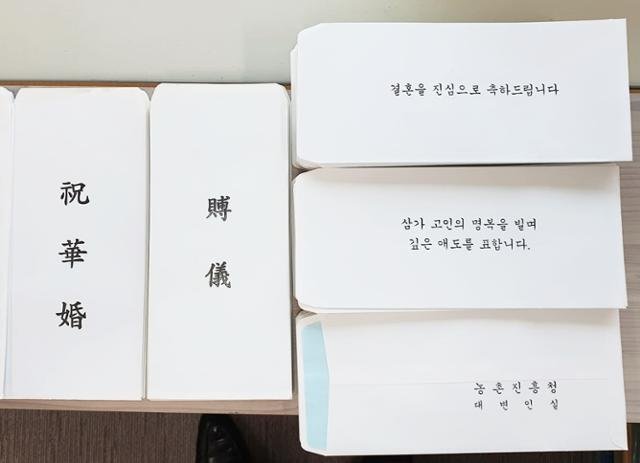 祝華婚
賻儀
결혼을 진심으로 축하드립니다
삼가 고인의 명복을 빌며
깊은 애도를 표합니다.
농촌진흥청
대변인실